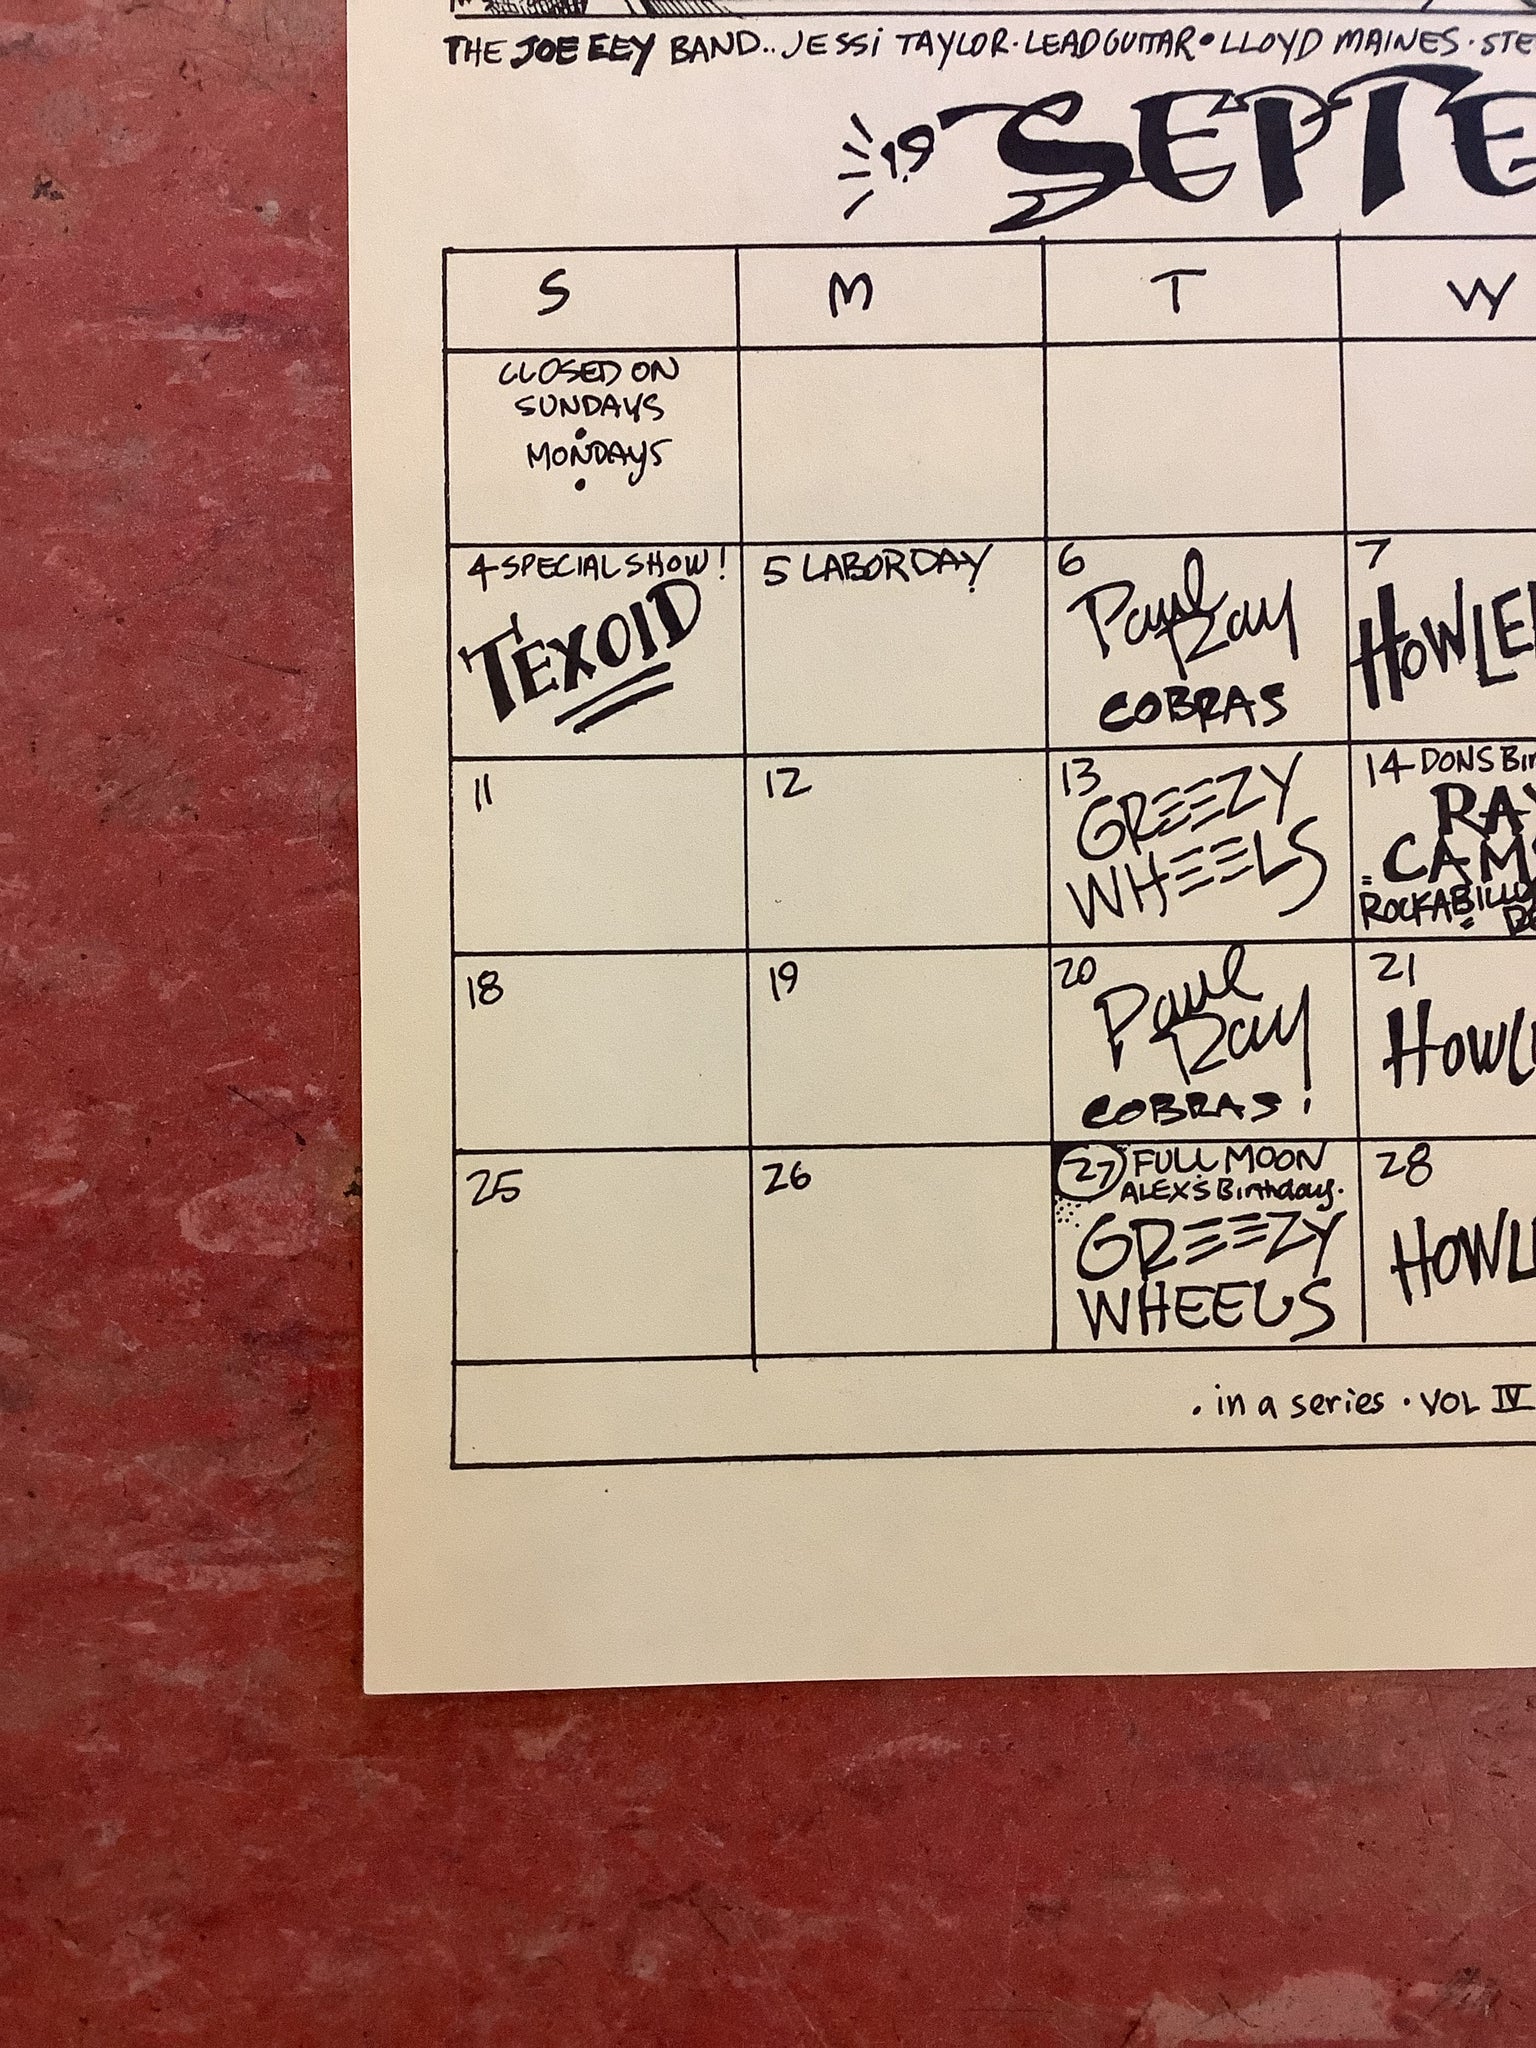 THE JOE ELY BAND.. JESSI TAYLOR · LEAD GUITAR • LLOYD MAINES · STE
19 SEPTE
S M T W
CLOSED ON
SUNDAYS
•
MONDAYS
•
4 SPECIAL SHOW!
TEXOID
5 LABOR DAY
6
Paul
Ray
COBRAS
7
HOWLE
11
12
13
GREEZY
WHEELS
14 DONS Bir
RAY
CAM
ROCKABILLY
18
19
20
Paul
Ray
COBRAS!
21
HOWL
25
26
27 FULL MOON
ALEX'S Birthday.
GREEZY
WHEELS
28
HOWL
. in a series · VOL IV